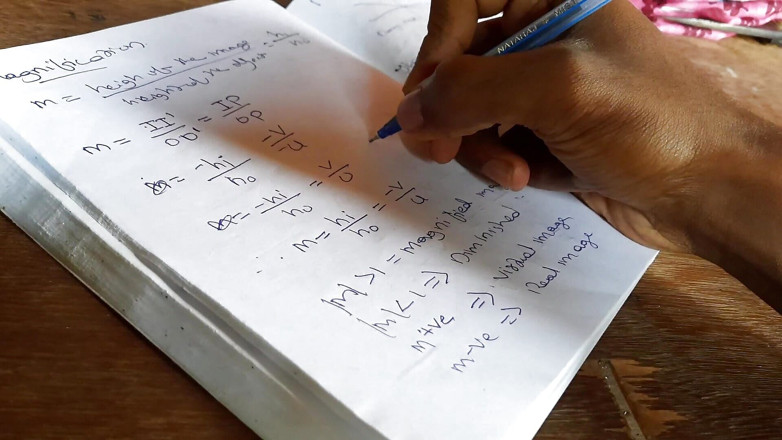 agnification
m = height of the image / height of the object = hi / ho
m = II' / OO' = IP / OP
= -hi / ho = -v / -u
= -hi / ho = v / u
∴ m = hi / ho = -v / u
|m| > 1 = magnified
|m| < 1 => Diminished
m +ve => virtual image
m -ve => Real image
NATARAJ